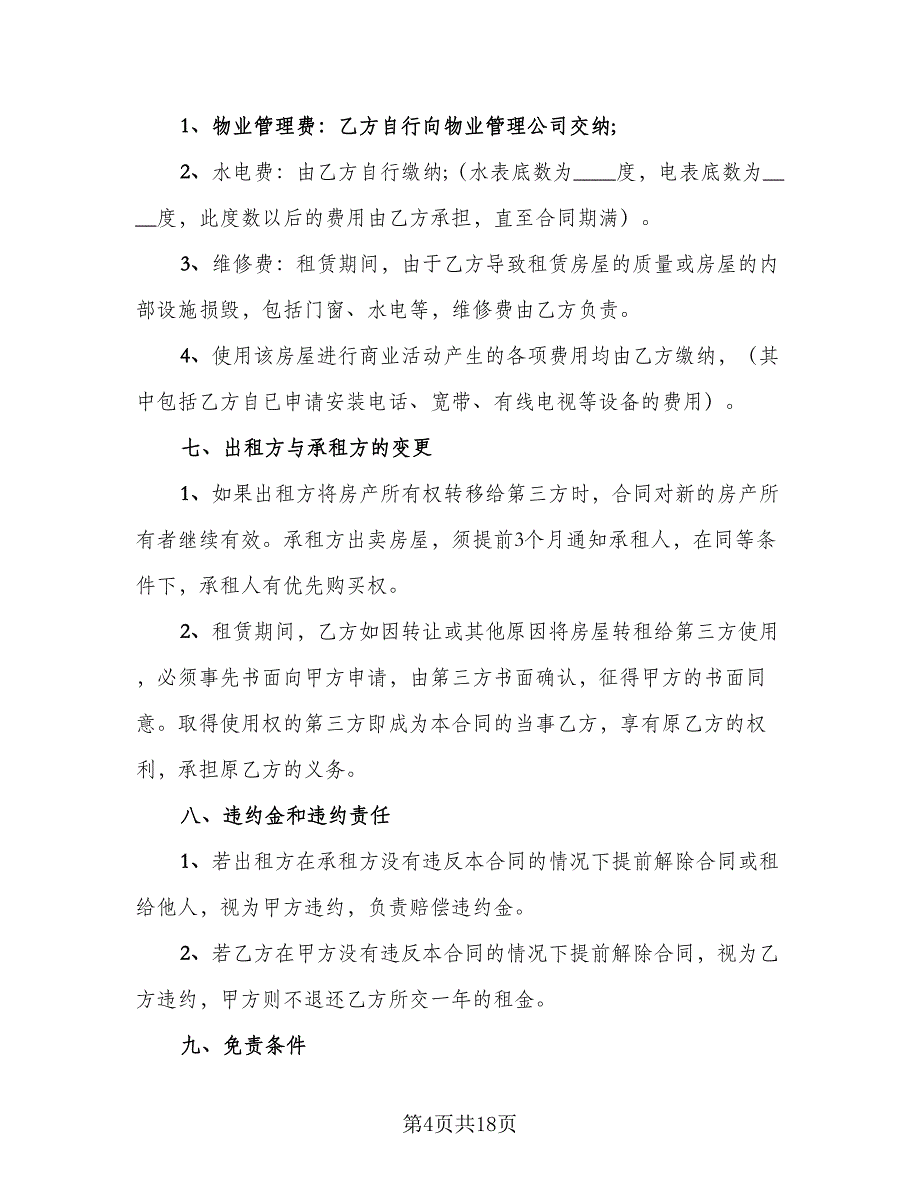 1、物业管理费：乙方自行向物业管理公司交纳;
2、水电费：由乙方自行缴纳;（水表底数为____度，电表底数为__
__度，此度数以后的费用由乙方承担，直至合同期满）。
3、维修费：租赁期间，由于乙方导致租赁房屋的质量或房屋的内
部设施损毁，包括门窗、水电等，维修费由乙方负责。
4、使用该房屋进行商业活动产生的各项费用均由乙方缴纳，（其
中包括乙方自已申请安装电话、宽带、有线电视等设备的费用）。
七、出租方与承租方的变更
1、如果出租方将房产所有权转移给第三方时，合同对新的房产所
有者继续有效。承租方出卖房屋，须提前3个月通知承租人，在同等条
件下，承租人有优先购买权。
2、租赁期间，乙方如因转让或其他原因将房屋转租给第三方使用
，必须事先书面向甲方申请，由第三方书面确认，征得甲方的书面同
意。取得使用权的第三方即成为本合同的当事乙方，享有原乙方的权
利，承担原乙方的义务。
八、违约金和违约责任
1、若出租方在承租方没有违反本合同的情况下提前解除合同或租
给他人，视为甲方违约，负责赔偿违约金。
2、若乙方在甲方没有违反本合同的情况下提前解除合同，视为乙
方违约，甲方则不退还乙方所交一年的租金。
九、免责条件
第4页共18页